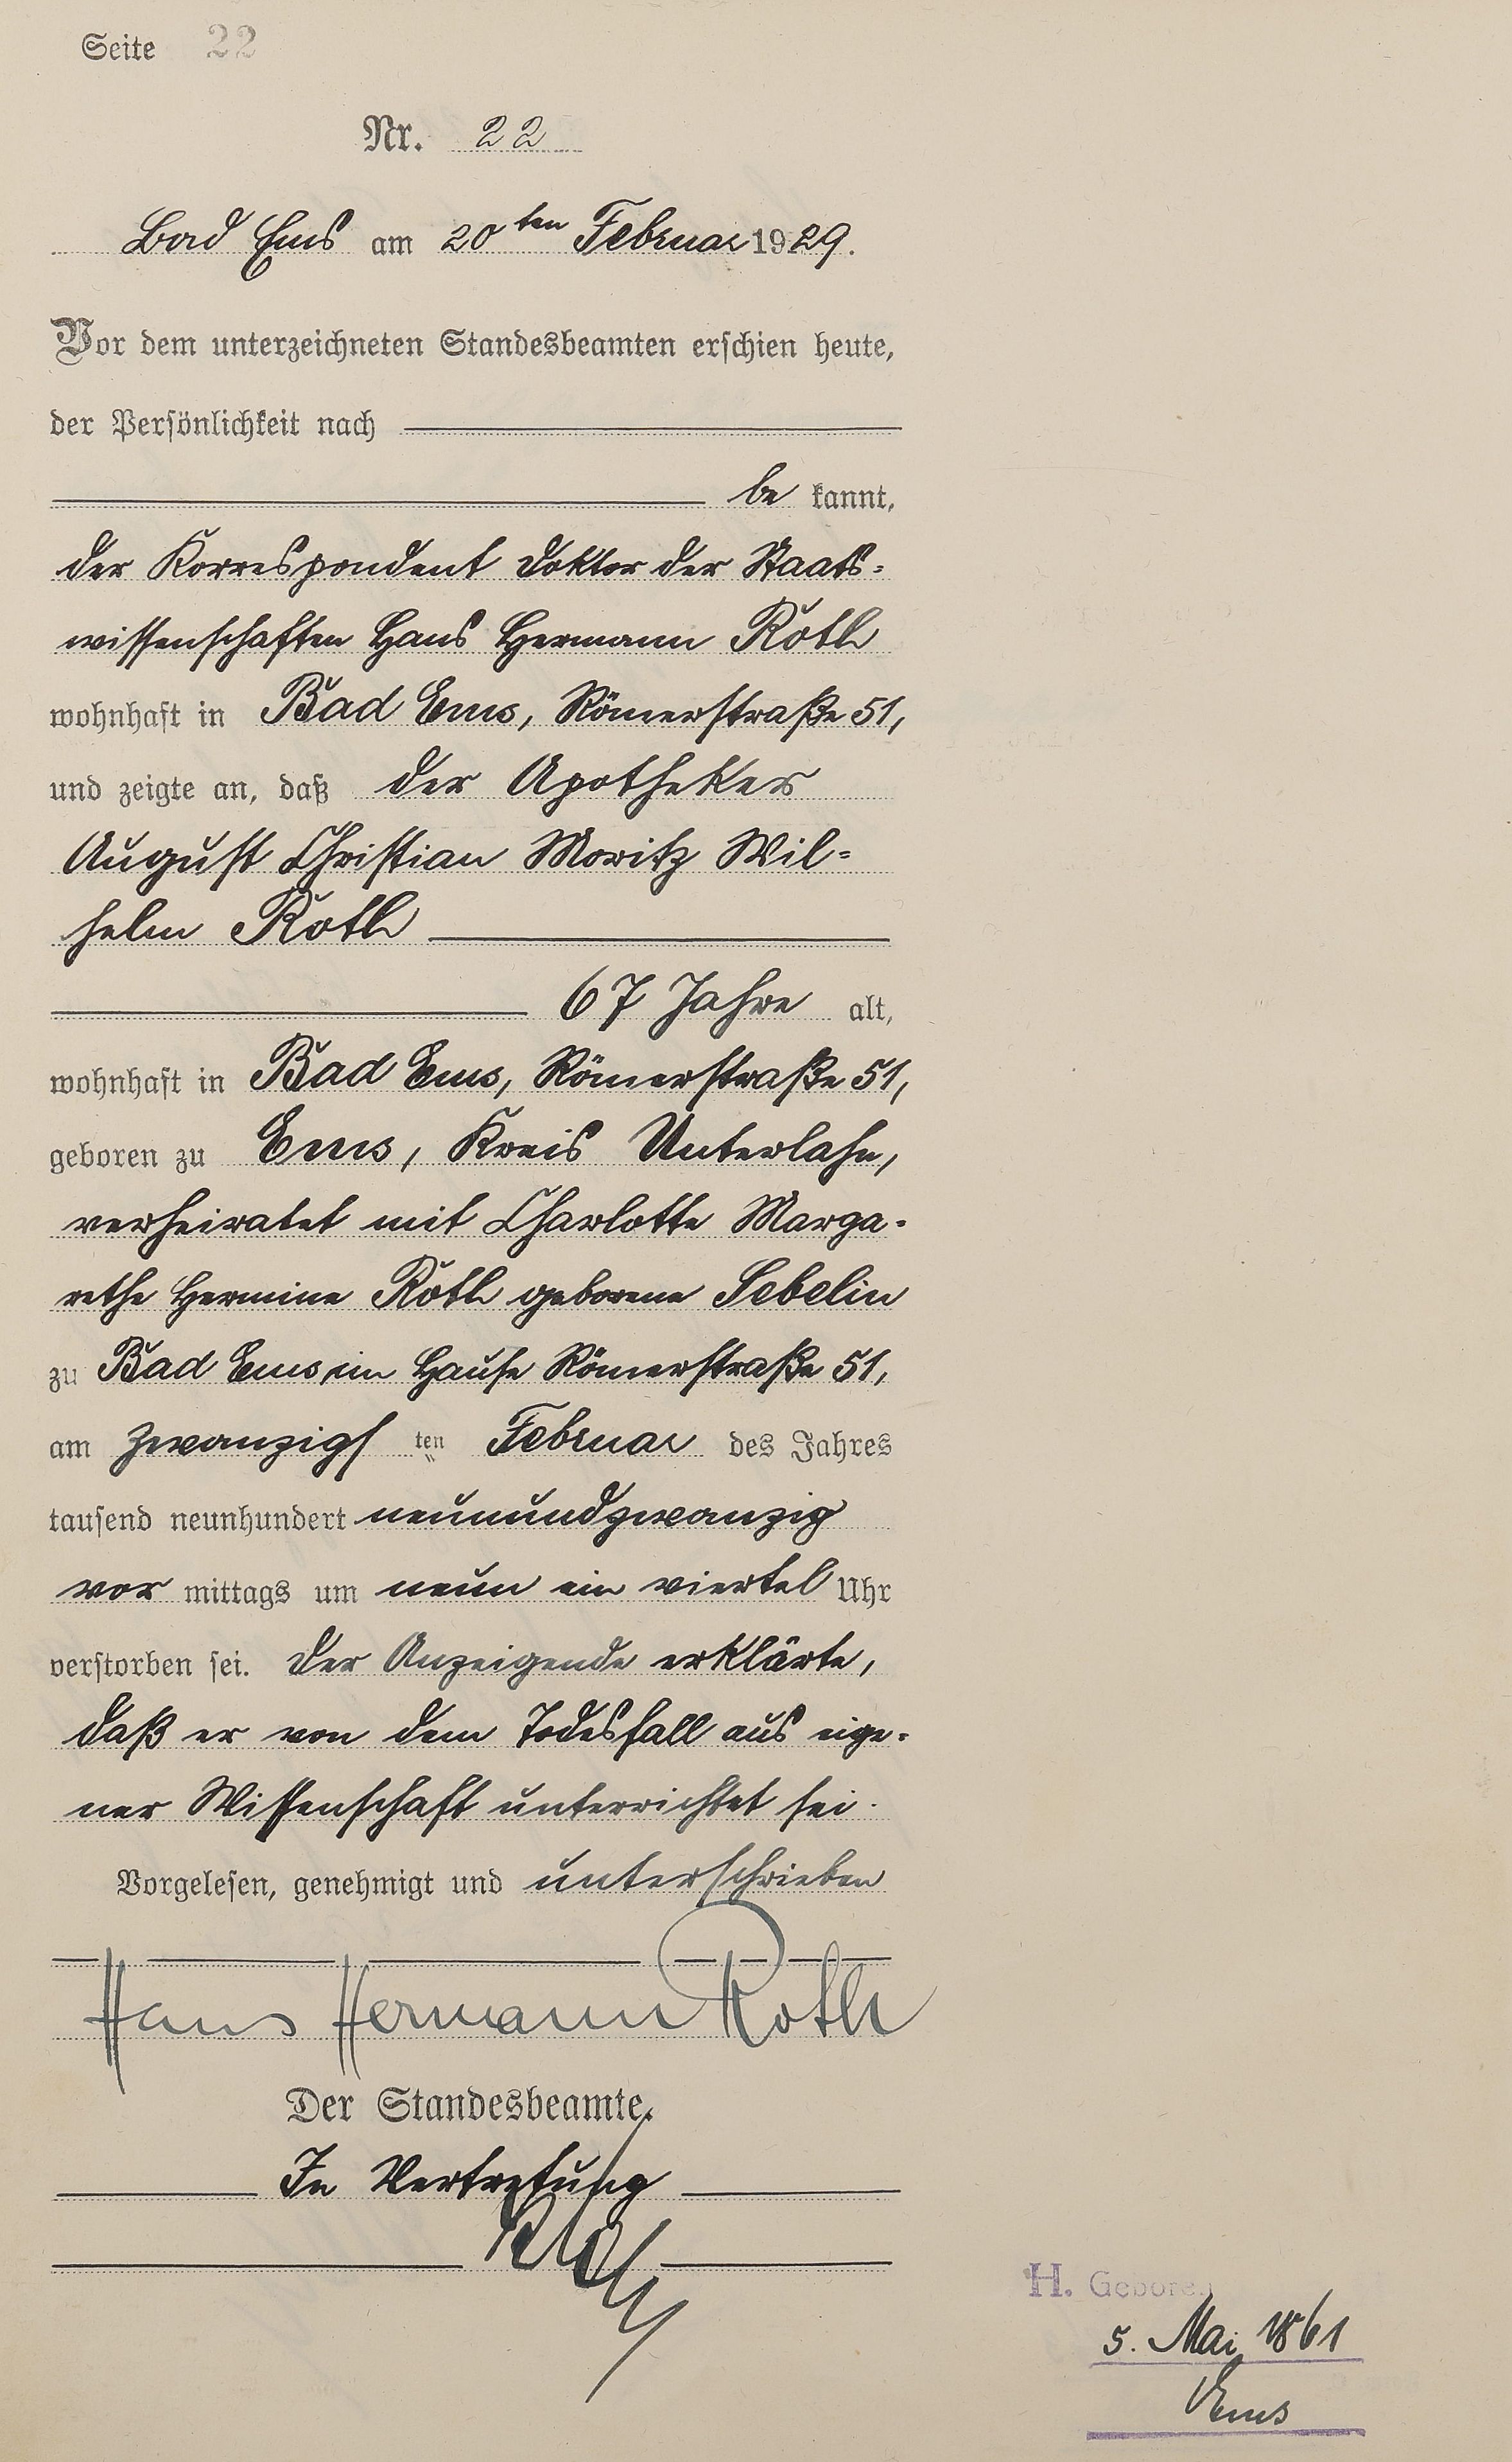 Seite 22
Nr. 22
Bad Ems am 20ten Februar 1929.
Vor dem unterzeichneten Standesbeamten erschien heute,
der Persönlichkeit nach
be kannt,
der Korrespondent Doktor der Staats=
wissenschaften Hans Hermann Roth
wohnhaft in Bad Ems, Römerstraße 51,
und zeigte an, daß der Apotheker
August Christian Moritz Wil=
helm Roth
67 Jahre alt,
wohnhaft in Bad Ems, Römerstraße 51,
geboren zu Ems, Kreis Unterlahn,
verheiratet mit Charlotte Marga-
rethe Hermine Roth geborene Sebelin
zu Bad Ems, im Hause Römerstraße 51,
am zwanzigsten Februar des Jahres
tausend neunhundert neunundzwanzig
vor mittags um neun ein viertel Uhr
verstorben sei. Der Anzeigende erklärte,
daß er von dem Todesfall aus eige-
ner Wissenschaft unterrichtet sei.
Vorgelesen, genehmigt und unterschrieben
Hans Hermann Roth
Der Standesbeamte.
In Vertretung
H. Geboren
5. Mai 1861
Ems